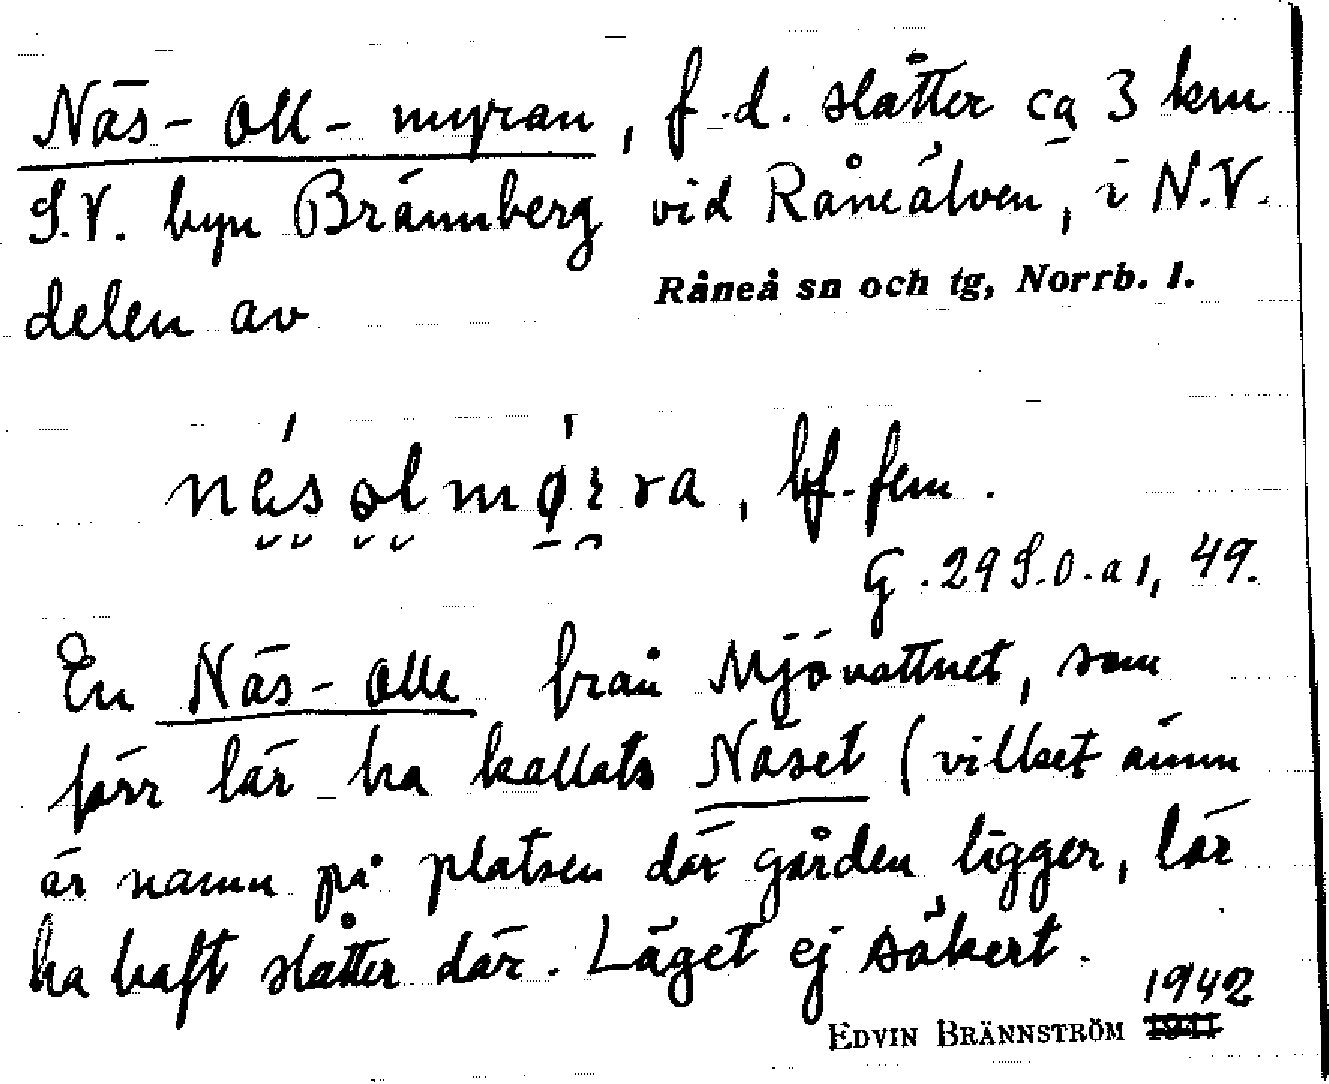 Näs-Oll-myran, f.d. slåtter ca 3 km
S.V. byn Brännberg vid Råneälven, i N.V.
delen av Råneå sn och tg, Norrb. l.
bf. fem.
G. 29 S.O. a 1, 49.
En Näs-Olle från Mjövattnet, som
förr lär ha kallats Näset (vilket ännu
är namn på platsen där gården ligger, lär
ha haft slåtter där. Läget ej säkert.
EDVIN BRÄNNSTRÖM 1942